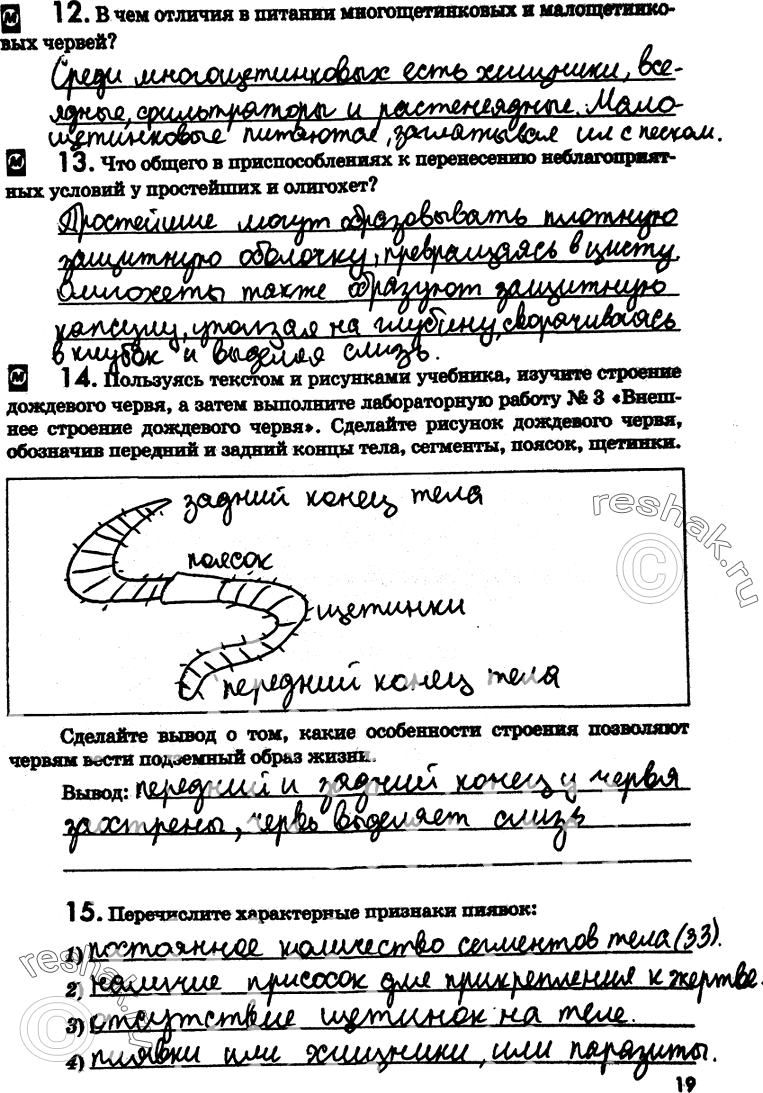 М 12. В чем отличия в питании многощетинковых и малощетинко-
вых червей?
Среди многощетинковых есть хищники, все-
ядные, фильтраторы и растенеядные. Мало-
щетинковые питаются, заглатывая ил с песком.
М 13. Что общего в приспособлениях к перенесению неблагоприят-
ных условий у простейших и олигохет?
Простейшие могут образовывать плотную
защитную оболочку, превращаясь в цисту.
Олигохеты также образуют защитную
капсулу, уползая на глубину, сворачиваясь
в клубок и выделяя слизь.
М 14. Пользуясь текстом и рисунками учебника, изучите строение
дождевого червя, а затем выполните лабораторную работу № 3 «Внеш-
нее строение дождевого червя». Сделайте рисунок дождевого червя,
обозначив передний и задний концы тела, сегменты, поясок, щетинки.
задний конец тела
reshak.ru
©
поясок
щетинки
передний конец тела
Сделайте вывод о том, какие особенности строения позволяют
червям вести подземный образ жизни.
Вывод: передний и задний конец у червя
заострены, червь выделяет слизь
15. Перечислите характерные признаки пиявок:
1) постоянное количество сегментов тела (33).
2) наличие присосок для прикрепления к жертве.
3) отсутствие щетинок на теле.
4) пиявки или хищники, или паразиты.
reshak.ru
©
19